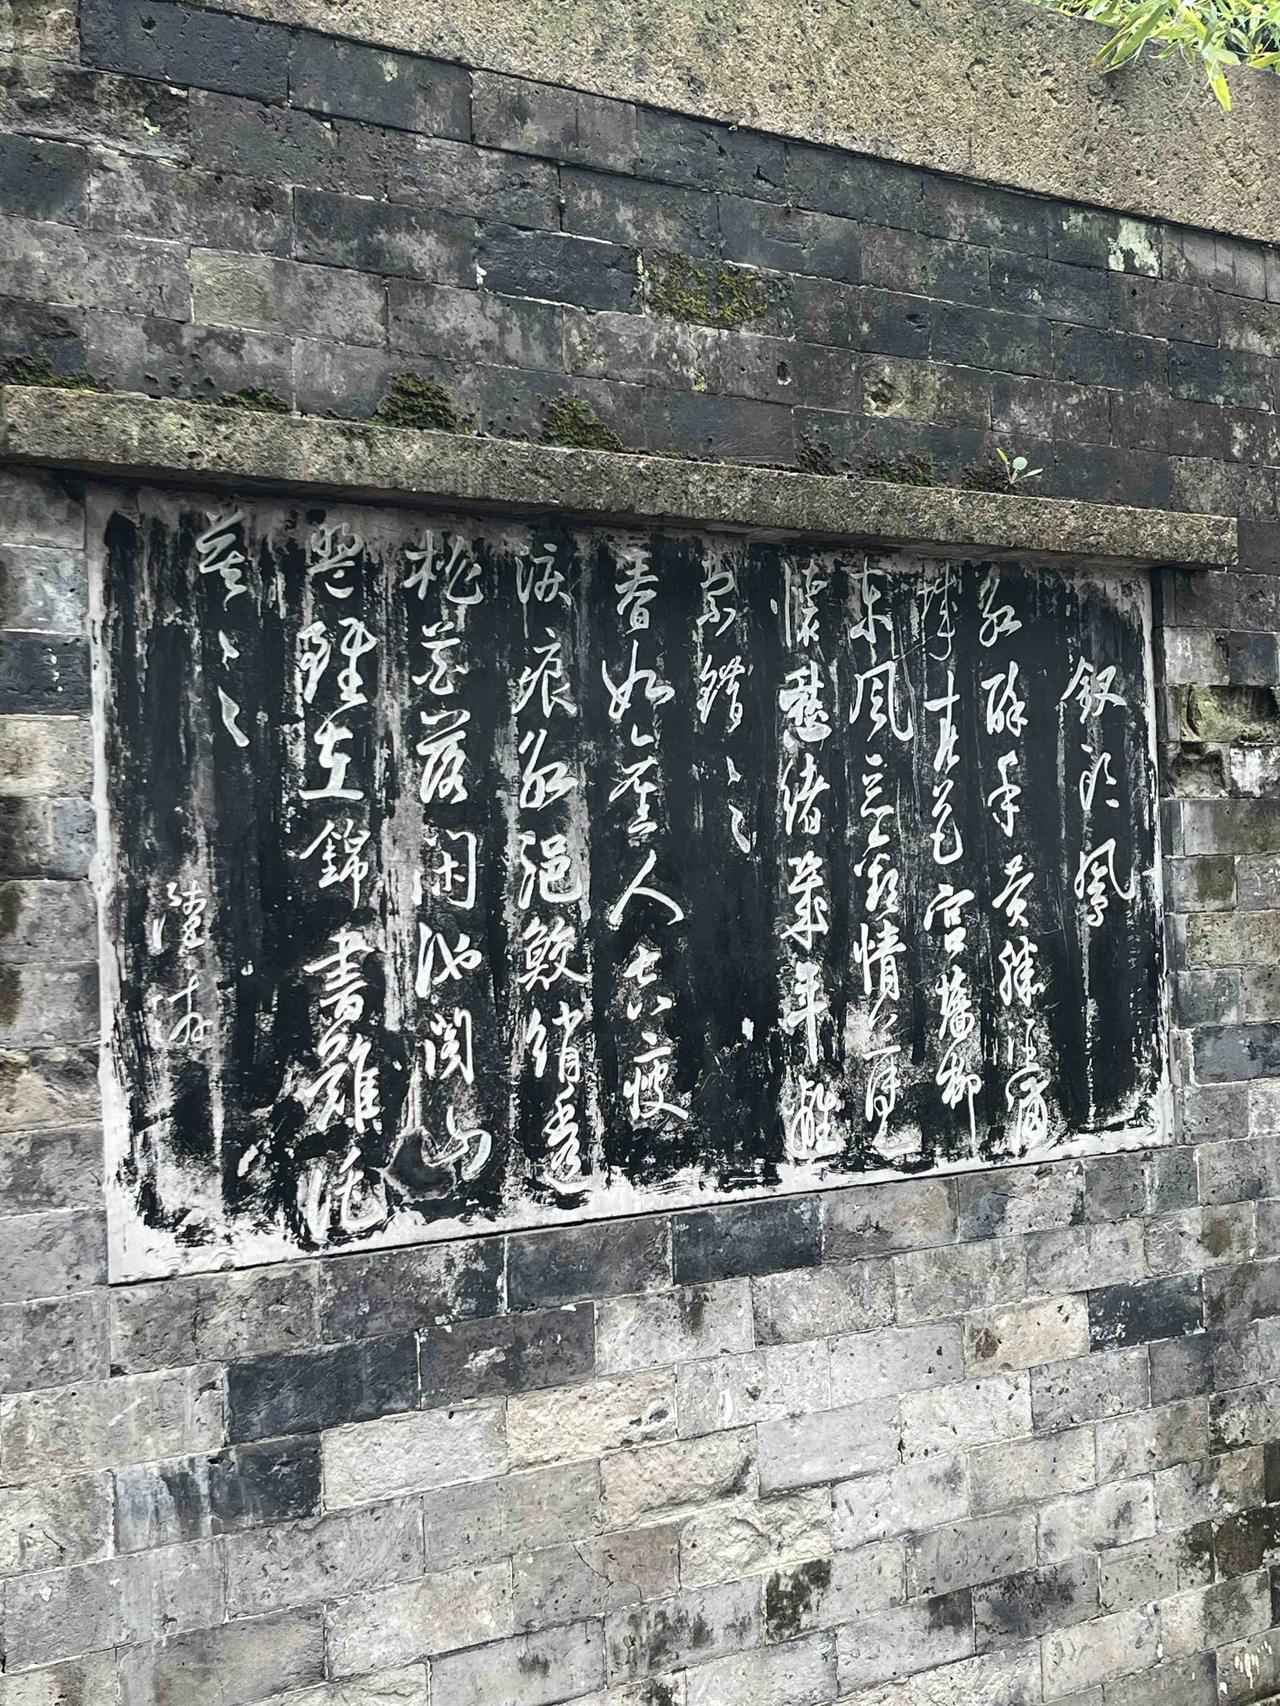 釵頭鳳
紅酥手黄縢酒滿
城春色宮墻柳
東風惡歡情薄一
懷愁緒幾年離
索錯〻〻
春如舊人空瘦
淚痕紅浥鮫綃透
桃花落閑池閣山
盟雖在錦書難託
莫〻〻
陸游